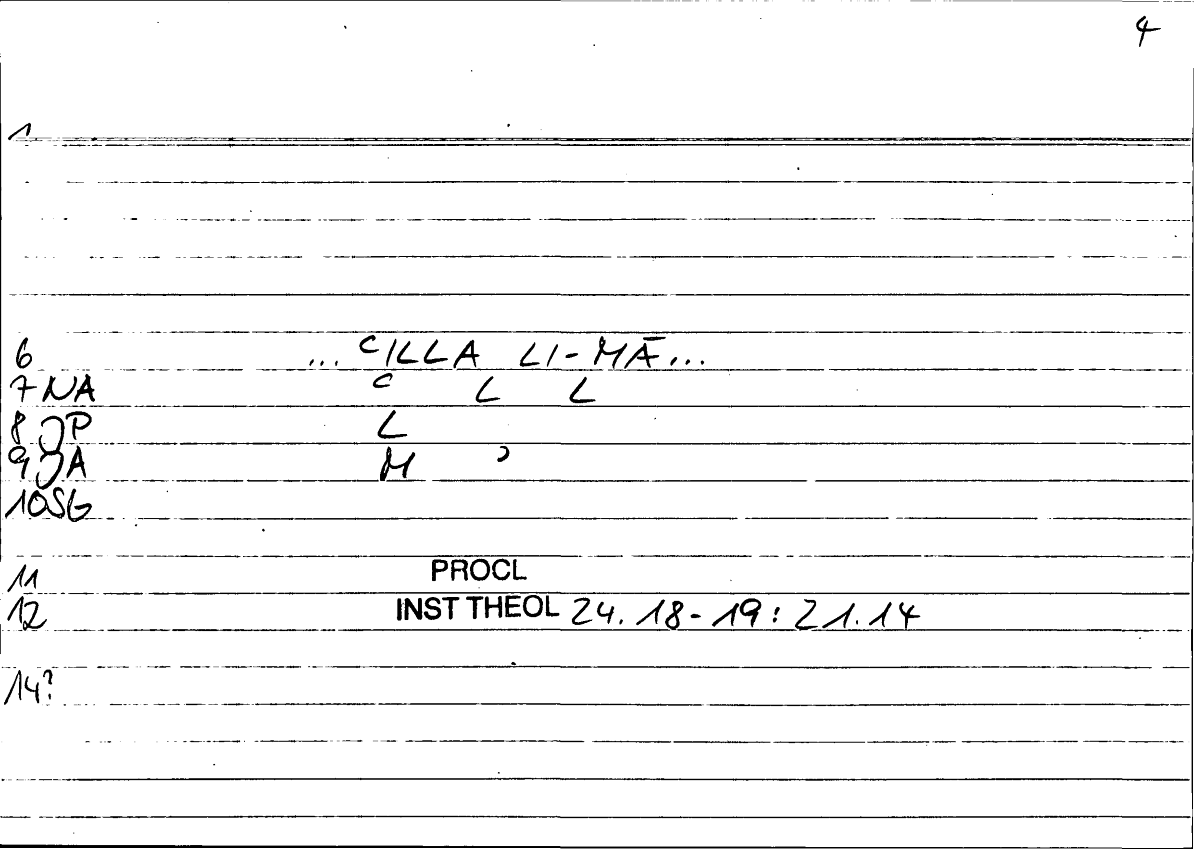 4
1
6 ... ᶜILLA LI-MĀ...
7 NA ᶜ L L
8 JP L
9 JA M ᵓ
10 SG
11 PROCL
12 INST THEOL 24.18-19:21.14
14?